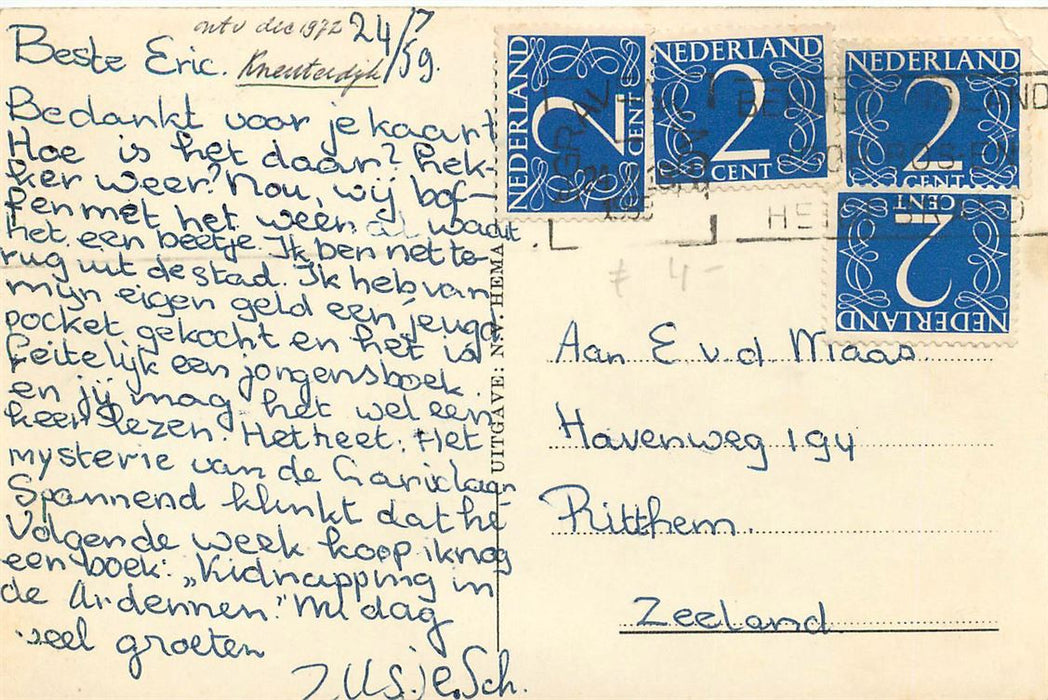 ontv dec 1972 24/7
Beste Eric. Kneuterdijk /59.
Bedankt voor je kaart
Hoe is het daar? Lek-
ker weer? Nou, wij bof-
fen met het weer, al waait
het een beetje. Ik ben net te-
rug uit de stad. Ik heb van
mijn eigen geld een jeugd
pocket gekocht en het is
feitelijk een jongensboek.
en jij mag het wel een
keer lezen. Het heet: Het
mysterie van de
Spannend klinkt dat hè
Volgende week koop ik nog
een boek: "Kidnapping in
de Ardennen." Nu dag
veel groeten
Zusje Sch.
UITGAVE: N.V. HEMA
NEDERLAND
2 CENT
NEDERLAND
2
CENT
NEDERLAND
2
CENT
NEDERLAND
2
CENT
HEI
f 4-
Aan E v d Maas.
Havenweg 194
Ritthem.
Zeeland.